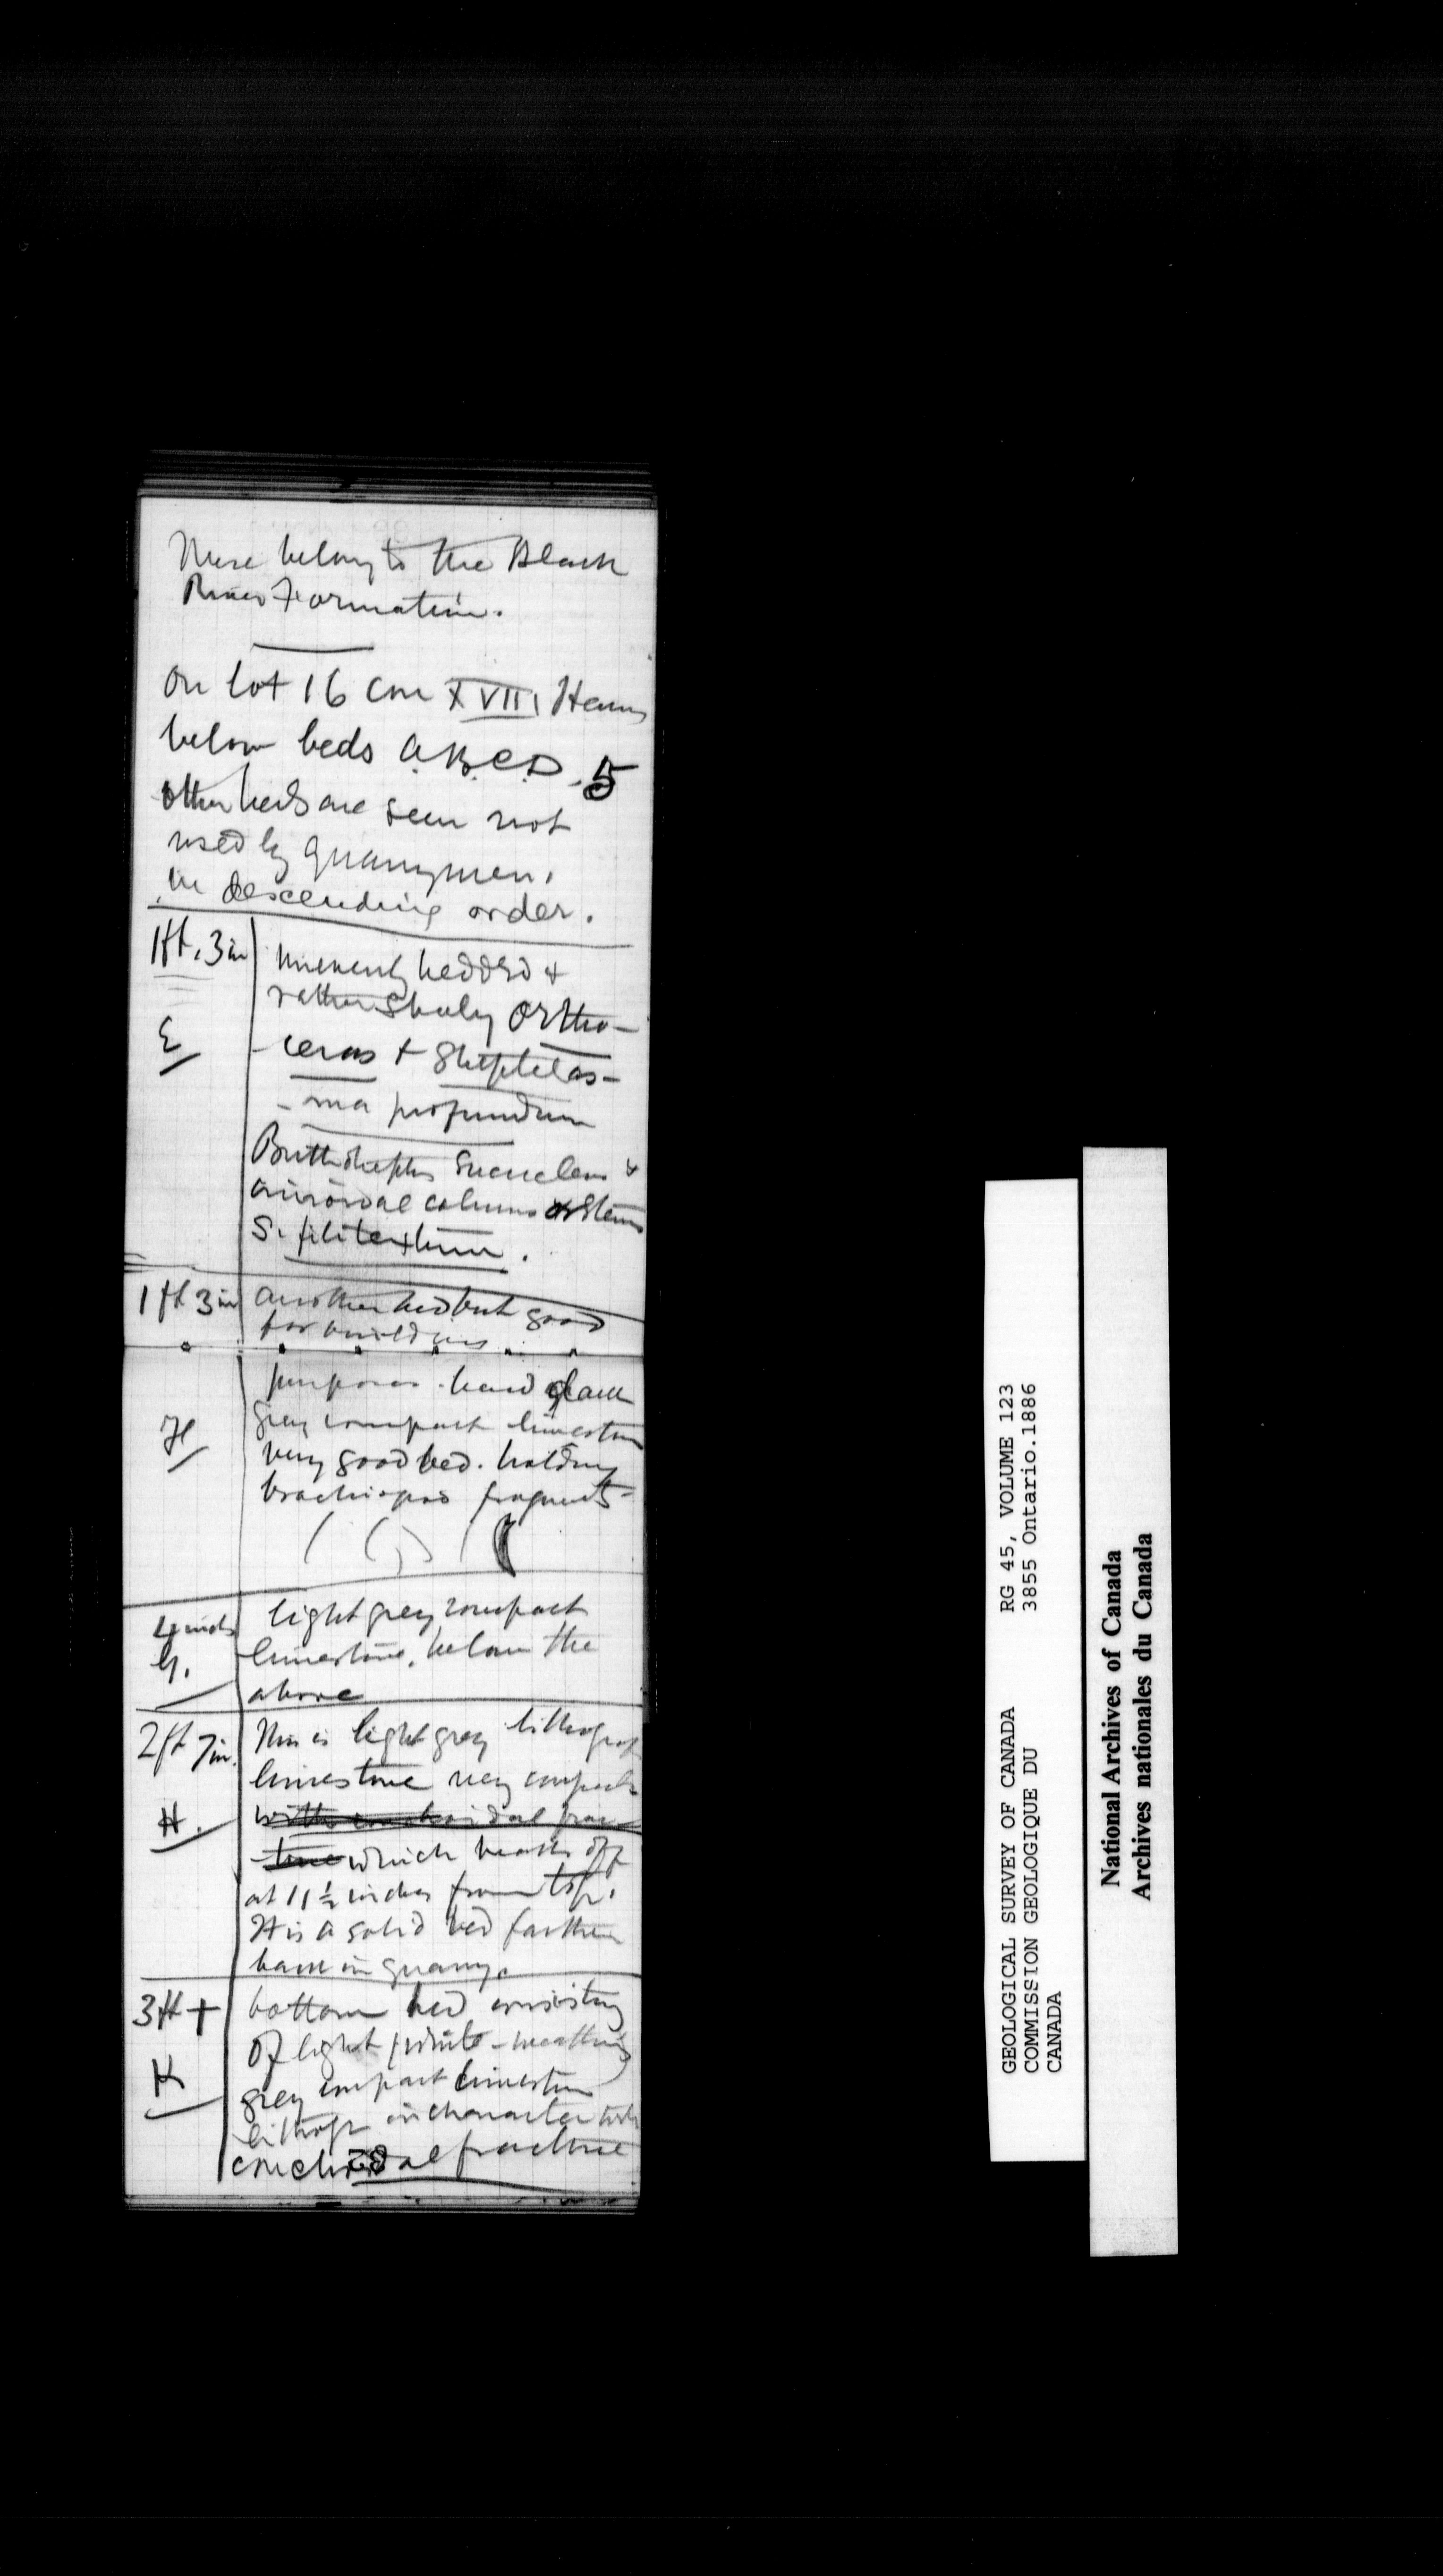 These belong to the Black
River Formation.
On lot 16 con XVIII
below beds A.B.C.D. 5
other beds are seen not
used by quarrymen.
in descending order.
1 ft. 3 in
E
unevenly bedded &
rather shaly Ortho-
-ceras & Streptelas-
-ma profundum
&
crinoidal columns or stems
S. filitextum.
1 ft 3 in
another bed but good
for building
purposes. hard dark
grey compact limestone
very good bed. holding
brachiopod fragments
4 inch
G.
light grey compact
limestone, below the
above
2 ft 7 in.
H.
This is light grey lithogra
limestone very compact
with conchoidal frac
-ture which breaks off
at 11 ½ inches from top.
It is a solid bed farther
back in quarry.
3 ft +
K
bottom bed consisting
of light white-weathering
grey compact limestone
lithogr in character with
conchoidal fracture
GEOLOGICAL SURVEY OF CANADA RG 45, VOLUME 123
COMMISSION GEOLOGIQUE DU 3855 Ontario.1886
CANADA
National Archives of Canada
Archives nationales du Canada